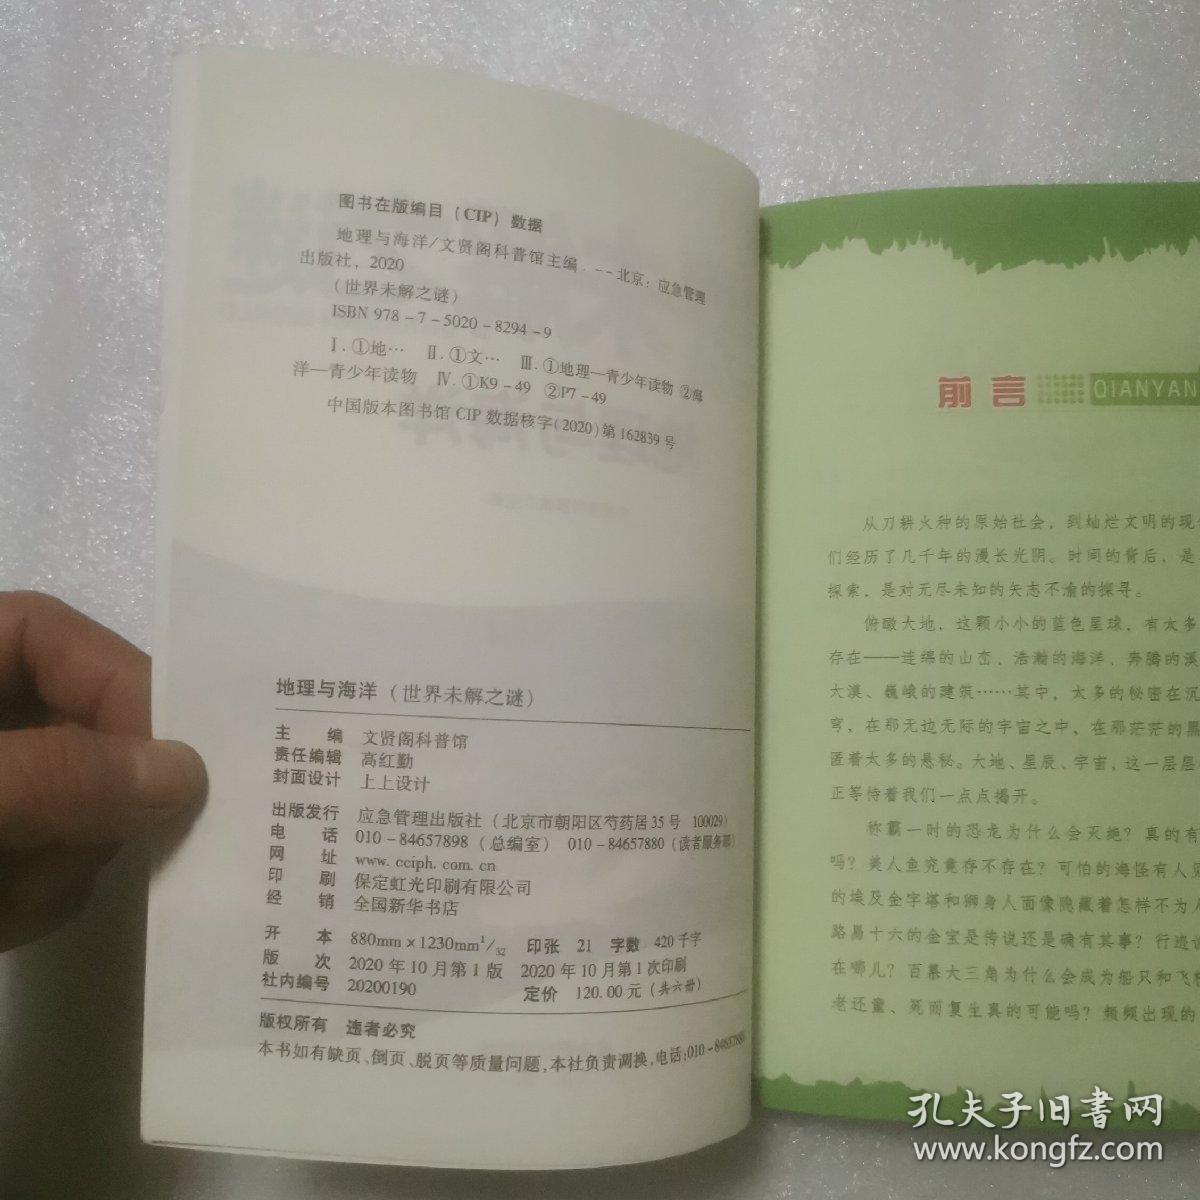 图书在版编目（CIP）数据
地理与海洋/文贤阁科普馆主编.--北京：应急管理
出版社，2020
（世界未解之谜）
ISBN 978-7-5020-8294-9
Ⅰ.①地… Ⅱ.①文… Ⅲ.①地理—青少年读物 ②海
洋—青少年读物 Ⅳ.①K9-49 ②P7-49
中国版本图书馆CIP数据核字（2020）第162839号
地理与海洋（世界未解之谜）
主 编 文贤阁科普馆
责任编辑 高红勤
封面设计 上上设计
出版发行 应急管理出版社（北京市朝阳区芍药居35号 100029）
电 话 010-84657898（总编室） 010-84657880（读者服务部）
网 址 www.cciph.com.cn
印 刷 保定虹光印刷有限公司
经 销 全国新华书店
开 本 880mm×1230mm 1/32 印张 21 字数 420千字
版 次 2020年10月第1版 2020年10月第1次印刷
社内编号 20200190 定价 120.00元（共六册）
版权所有 违者必究
本书如有缺页、倒页、脱页等质量问题，本社负责调换，电话:010-84657880
前言 QIANYAN
从刀耕火种的原始社会，到灿烂文明的现
们经历了几千年的漫长光阴。时间的背后，是
探索，是对无尽未知的矢志不渝的探寻。
俯瞰大地，这颗小小的蓝色星球，有太多
存在——连绵的山峦、浩瀚的海洋、奔腾的溪
大漠、巍峨的建筑……其中，太多的秘密在沉
穹，在那无边无际的宇宙之中，在那茫茫的黑
匿着太多的悬秘。大地、星辰、宇宙，这一层层
正等待着我们一点点揭开。
称霸一时的恐龙为什么会灭绝？真的有
吗？美人鱼究竟存不存在？可怕的海怪有人见
的埃及金字塔和狮身人面像隐藏着怎样不为人
路易十六的金宝是传说还是确有其事？行迹
在哪儿？百慕大三角为什么会成为船只和飞机
老还童、死而复生真的可能吗？频频出现的
孔夫子旧书网
www.kongfz.com